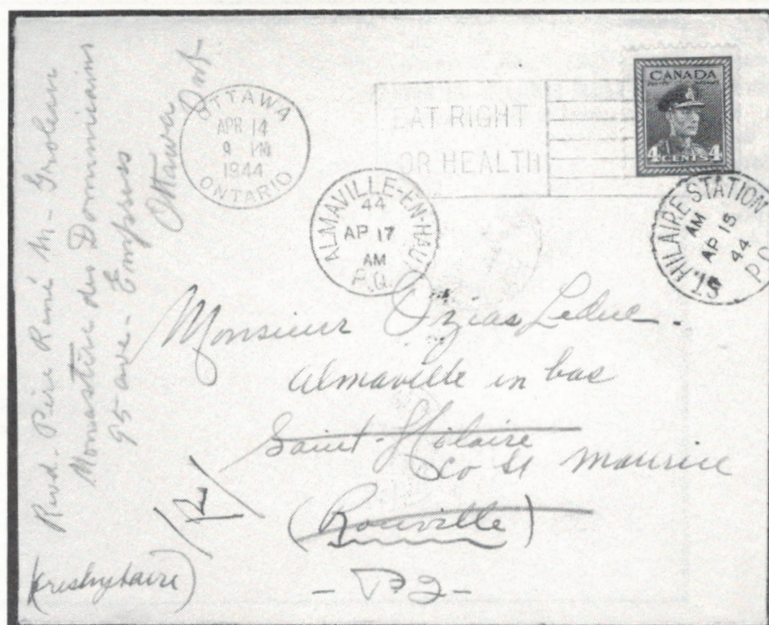 Rvd. Père René M-
Monastère des Dominicains
95 ave- Empress
Ottawa
Ont-
OTTAWA
APR 14
1944
ONTARIO
EAT RIGHT
FOR HEALTH
CANADA
4 CENTS 4
ALMAVILLE-EN-HAUT
44
AP 17
AM
P.Q.
ST. HILAIRE STATION
AM
AP 15
44
P.Q.
Monsieur Ozias Leduc-
Almaville en bas
Saint-Hilaire
Co St Maurice
(Rouville)
- PQ -
/R/
(presbytaire)